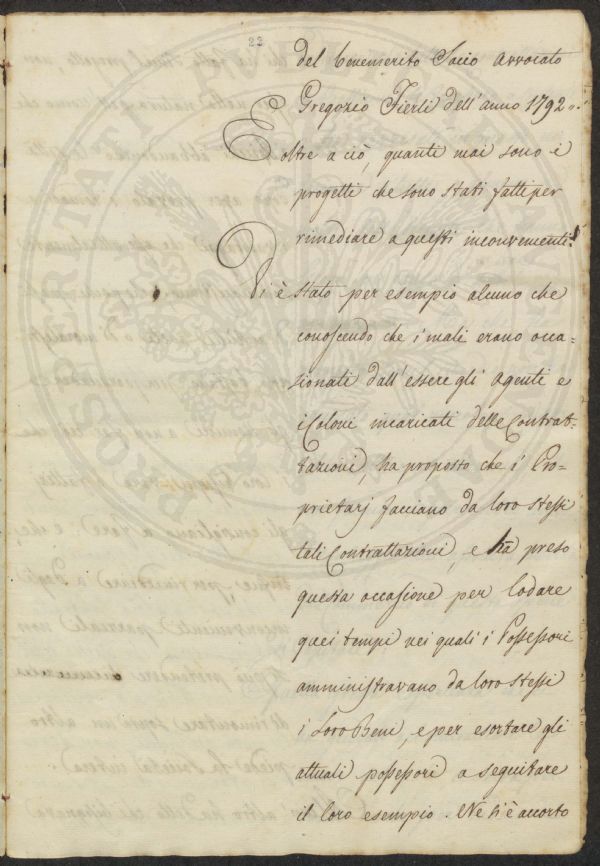 22
del benemerito Socio Avvocato
Gregorio Fierli dell'anno 1792.
E oltre a ciò, quanti mai sono i
progetti che sono stati fatti per
rimediare a questi inconvenienti!
Vi è stato per esempio alcuno che
conoscendo che i mali erano occa=
sionati dall'essere gli Agenti e
i Coloni incaricati delle Contrat=
tazioni, ha proposto che i Pro=
prietarj facciano da loro stessi
tali Contrattazioni, e ha preso
questa occasione per lodare
quei tempi nei quali i Possessori
amministravano da loro stessi
i Loro Beni, e per esortare gli
attuali possessori a seguitare
il loro esempio. Ne si è accorto